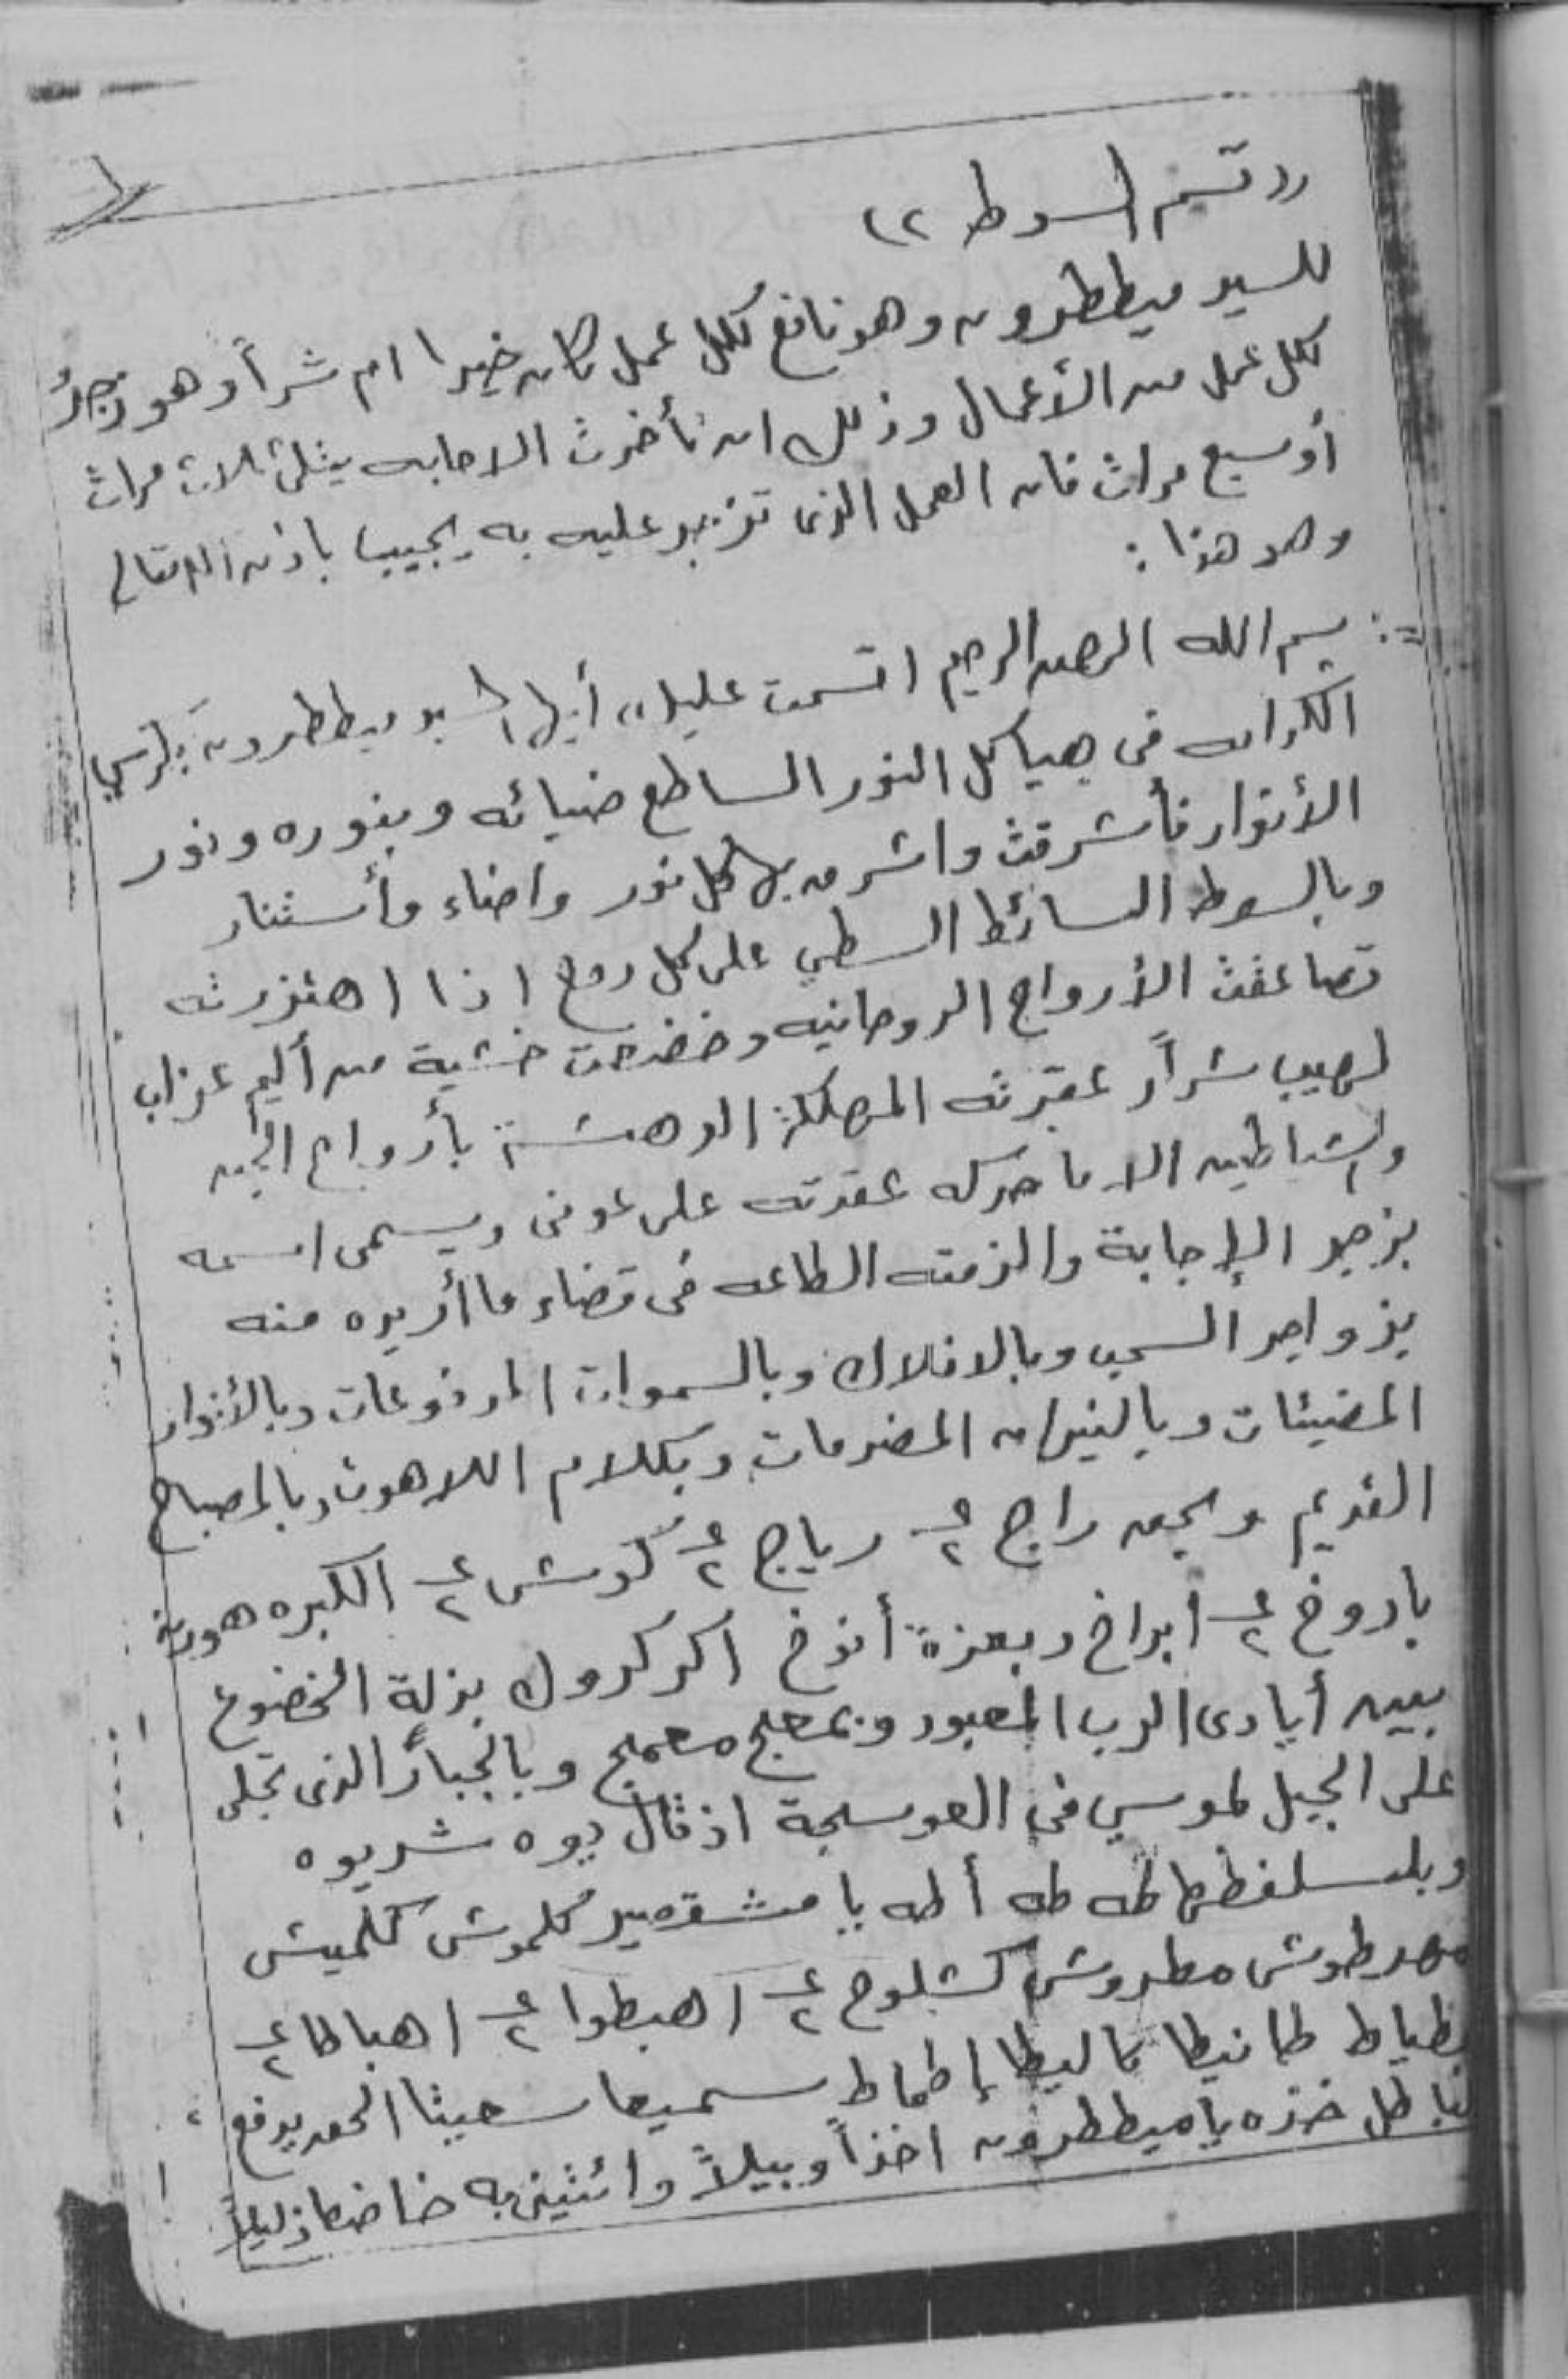 ((قسم السوط ٢)
للسيد ميططرون وهو نافع لكل عمل كان خيرا ام شراً وهو زجرٌ
لكل عمل من الأعمال وذلك ان تأخرت الاجابه يتلى ثلاث مرات
أو سبع مرات فان العمل الذى تزجر عليه به يجيب باذن الله تعالى
وهو هذا :
بسم الله الرحمن الرحيم اقسمت عليك أيها السيد ميططرون بكرسي
الكران فى هياكل النور الساطع ضيائه وبنوره ونور
الأنوار فأشرقت واشرق بها كل نور واضاء وأستنار
وبالسوط السائط السطي على كل روح اذا اهتزرته
تصاعقت الأرواح الروحانيه وخضعت خشية من أليم عذاب
لهيب شرار عقزته المهلكة الوهشة بأرواح الجن
والشياطين الا ما حركه عقدته على عونى ويسمى اسمه
بزجر الإجابة والزمته الطاعه فى قضاء ما أريده منه
بزواجر السحب وبالافلاك وبالسموات المرفوعات وبالأنوار
المضيئات وبالنيران المضرمات وبكلام اللاهوت وبالمصباح
القديم وبحق راج ٢ ع رياج ٢ ع كوش ٢ ع الكبره هورين
باروخ ٢ ع أبراخ وبعزة أنوخ اكركروك بذلة الخضوع
بين أيادى الرب المعبود وبمعلج معملج وبالجبار الذى تجلى
على الجبل لموسي فى العوسجة اذ قال ديوه شريوه
وبلسلفطها طه طه أطه يا مشقصير كلموش كلميش
مهرطوش مطروش كشلوخ ٢ ع اهبطوا ٢ ع اهباطا ٢ ع
طياط طانيطا كاليطا إطماط سميعا حيثا الحق يدفع
الباطل خذه يا ميططرون اخذاً وبيلاً وائتينى به خاضعا ذليلاً